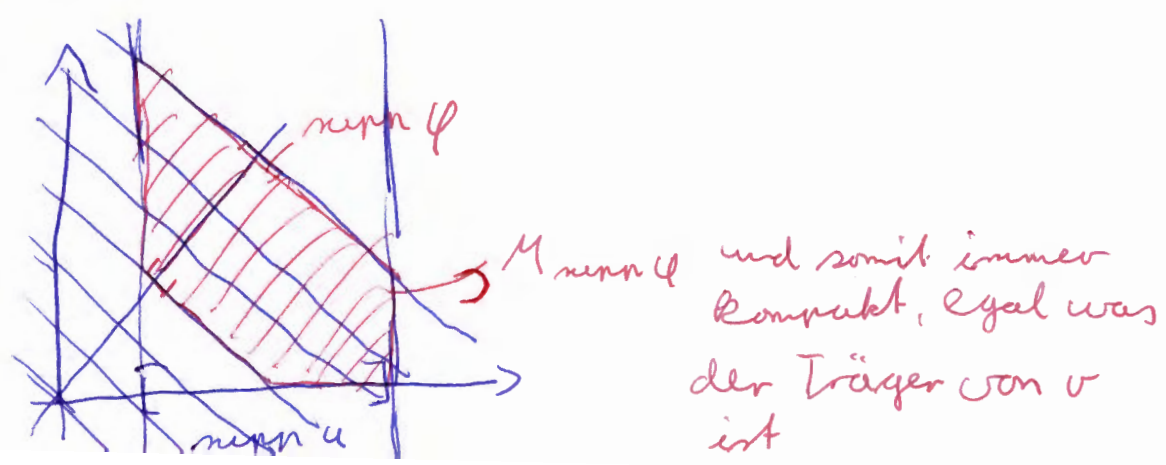 supp φ
M supp φ und somit immer
kompakt, egal was
der Träger von v
ist
supp u